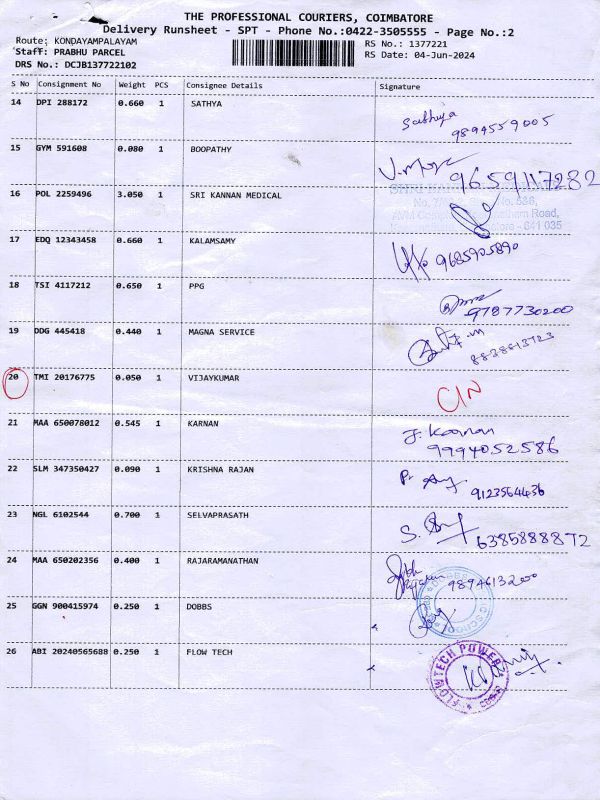 THE PROFESSIONAL COURIERS, COIMBATORE
Delivery Runsheet - SPT - Phone No.:0422-3505555 - Page No.:2
Route: KONDAYAMPALAYAM RS No.: 1377221
Staff: PRABHU PARCEL RS Date: 04-Jun-2024
DRS No.: DCJB137722102
S No Consignment No Weight PCS Consignee Details Signature
14 DPI 288172 0.660 1 SATHYA Sathiya
9894559005
15 GYM 591608 0.080 1 BOOPATHY
9659117282
16 POL 2259496 3.050 1 SRI KANNAN MEDICAL
17 EDQ 12343458 0.660 1 KALAMSAMY 9685905890
18 TSI 4117212 0.650 1 PPG
9787730200
19 DDG 445418 0.440 1 MAGNA SERVICE
8838613723
20 TMI 20176775 0.050 1 VIJAYKUMAR CIN
21 MAA 650078012 0.545 1 KARNAN J. Karnan
9994052586
22 SLM 347350427 0.090 1 KRISHNA RAJAN P.
9123564436
23 NGL 6102544 0.700 1 SELVAPRASATH S.
6385888872
24 MAA 650202356 0.400 1 RAJARAMANATHAN
9894613200
25 GGN 900415974 0.250 1 DOBBS
26 ABI 20240565688 0.250 1 FLOW TECH
FLOWTECH POWER